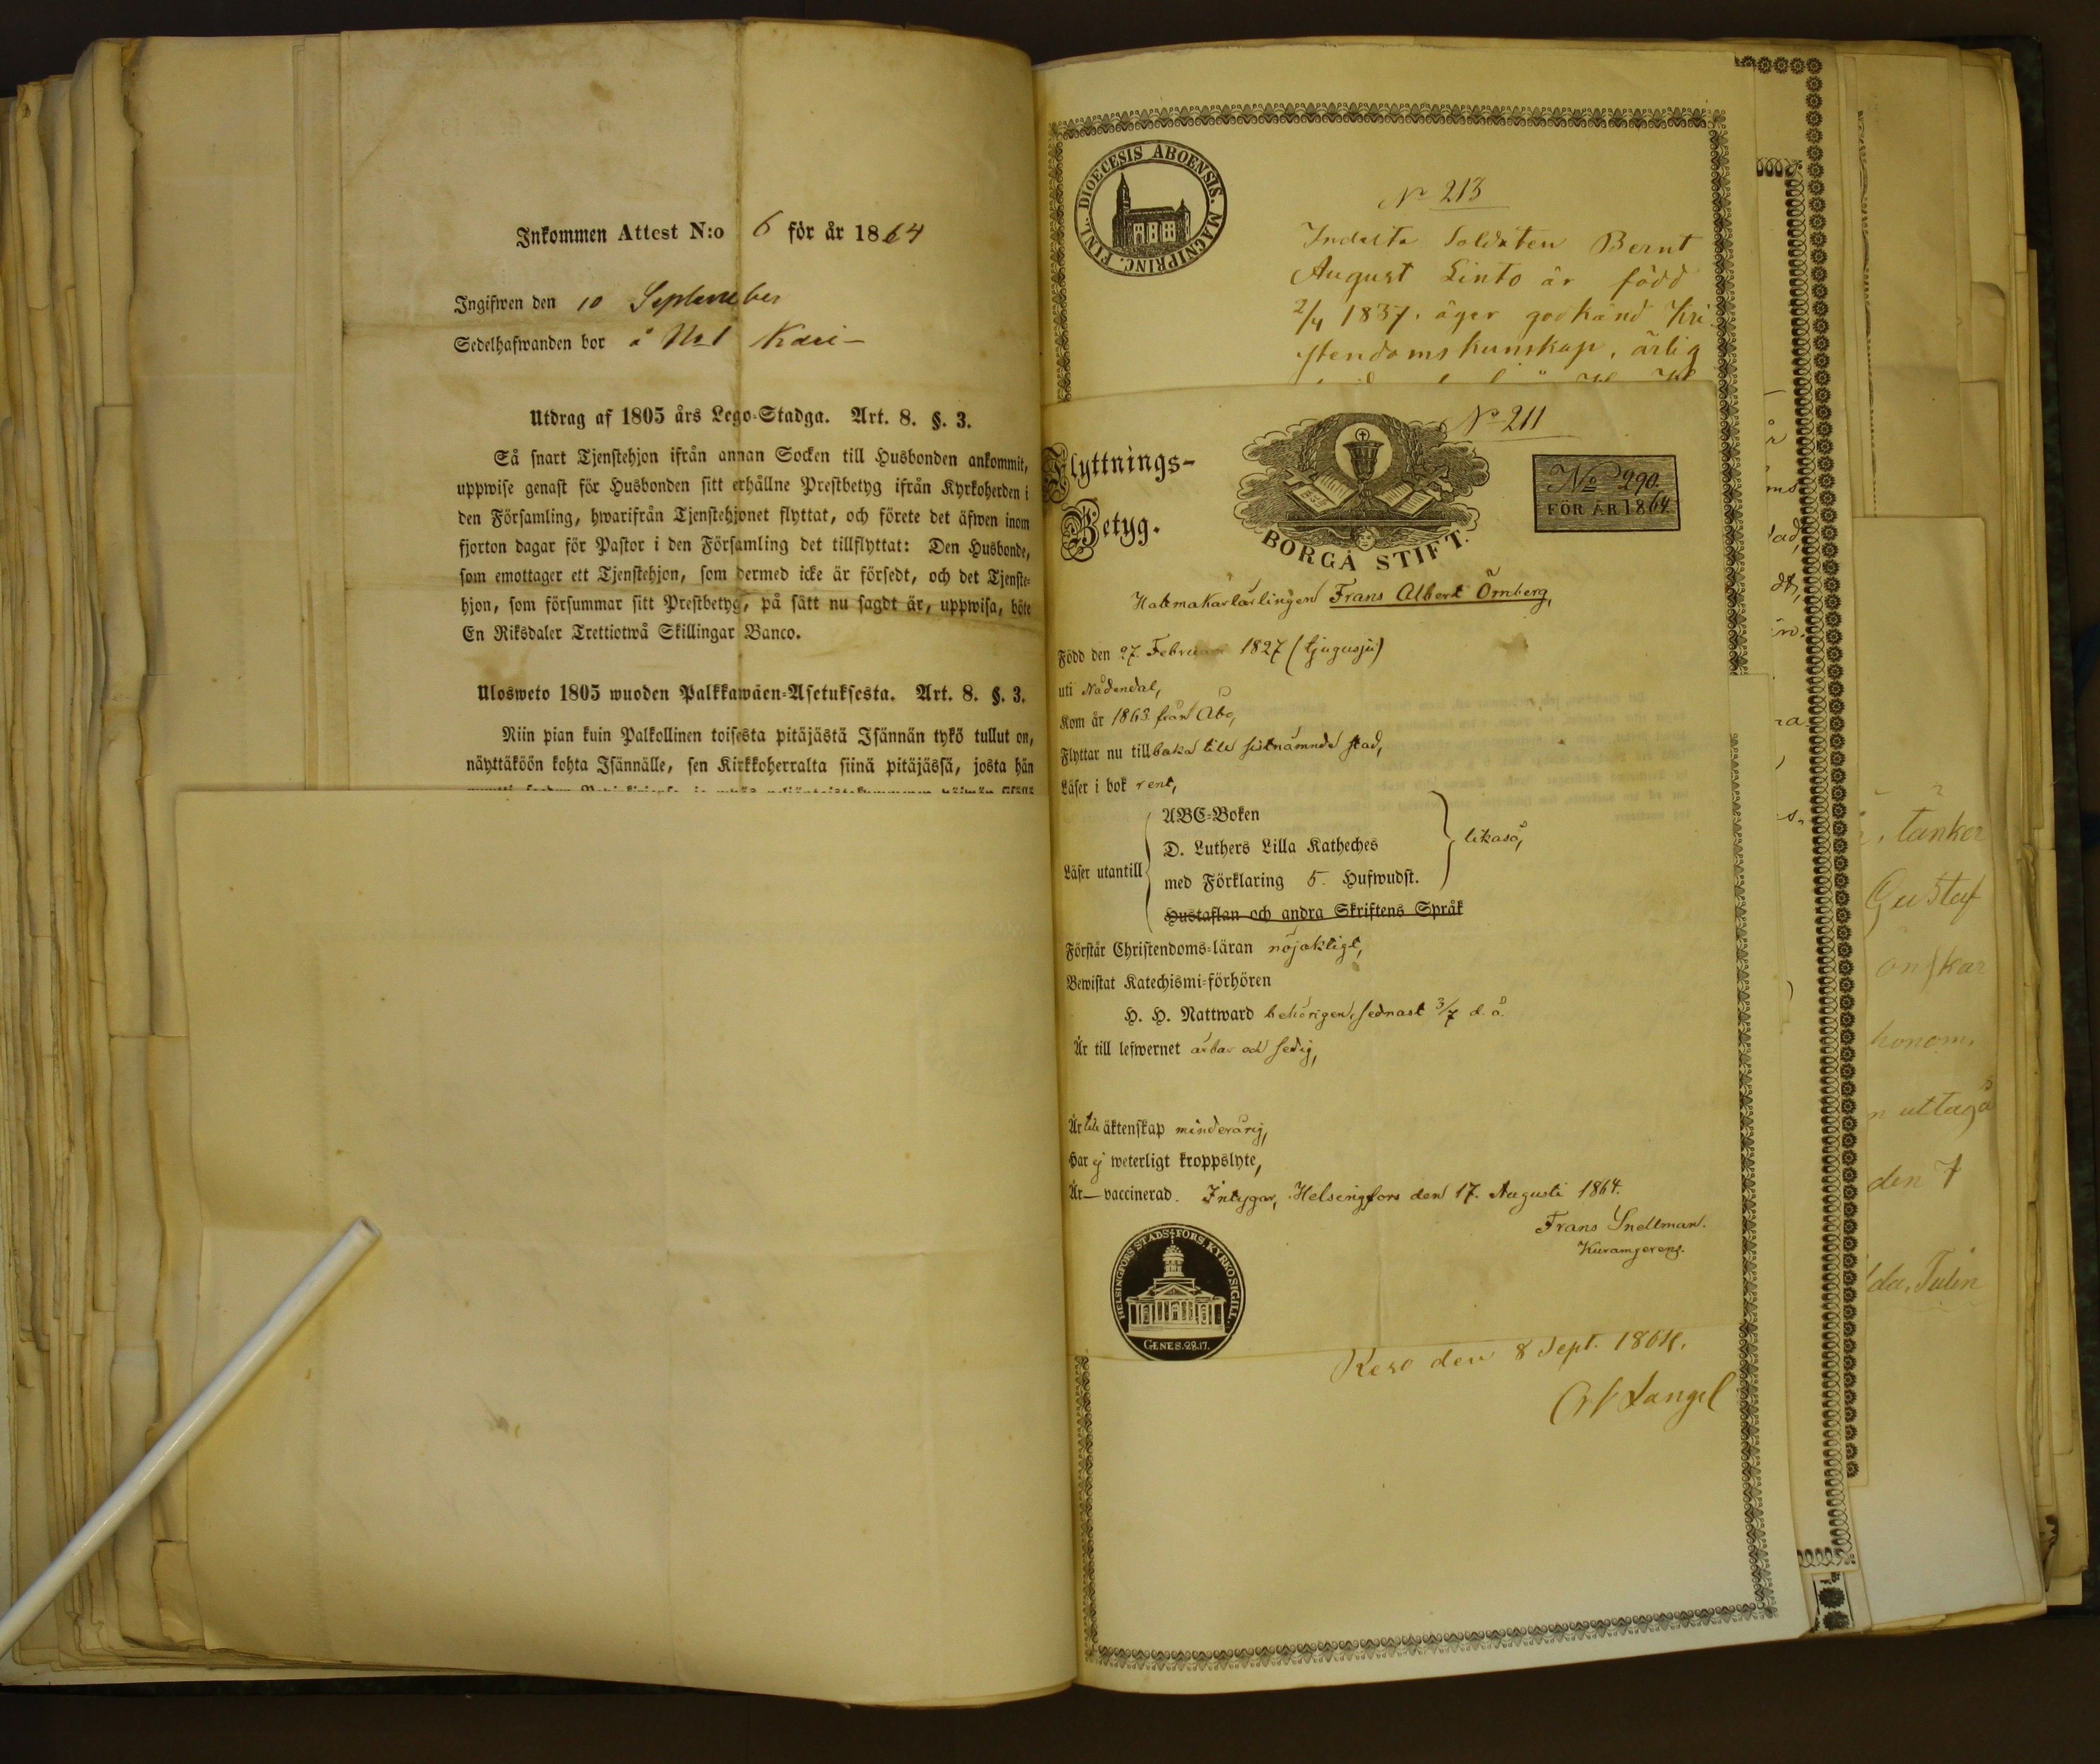 Inkommen Attest N:o 6 för år 1864
Ingifwen den 10 September
Sedelhafwanden bor å No 1
Utdrag af 1805 års Lego-Stadga. Art. 8. §. 3.
Så snart Tjenstehjon ifrån annan Socken till Husbonden ankommit,
uppwise genast för Husbonden sitt erhållne Prestbetyg ifrån Kyrkoherden i
den Församling, hwarifrån Tjenstehjonet flyttat, och förete det äfwen inom
fjorton dagar för Pastor i den Församling det tillflyttat: Den Husbonde,
som emottager ett Tjenstehjon, som dermed icke är försedt, och det Tjenste-
hjon, som försummar sitt Prestbetyg, på sätt nu sagdt är, uppwisa, böte
En Riksdaler Trettiotwå Skillingar Banco.
Ulosweto 1805 wuoden Palkkawäen-Asetuksesta. Art. 8. §. 3.
Niin pian kuin Palkollinen toisesta pitäjästä Isännän tykö tullut on,
näyttäköön kohta Isännälle, sen Kirkkoherralta siinä pitäjässä, josta hän
DIOECESIS ABOENSIS. MAGNIPRINC. FINL.
No 213
Indelta Soldaten Bernt
August Linto är född
2/4 1837. äger godkänd Kri-
stendomskunskap, ärlig
No 211
Flyttnings-
Betyg.
BORGÅ STIFT.
No 290.
FÖR ÅR 1864.
Hattmakarlärlingen Frans Albert Örnberg,
Född den 27. Februari 1827 (tjugusju)
uti Nådendal,
Kom år 1863 från Åbo,
Flyttar nu tillbaka till sistnämnde stad,
Läser i bok rent,
Läser utantill
ABC-Boken
D. Luthers Lilla Katheches
med Förklaring 5. Hufwudst.
Hustaflan och andra Skriftens Språk
likaså,
Förstår Christendoms-läran nöjaktigt,
Bewistat Katechismi-förhören
H. H. Nattward behörigen, sednast 3/7 d. å.
Är till lefwernet ärbar och sedig,
Är till äktenskap minderårig,
Har ej weterligt kroppslyte,
Är — vaccinerad. Intygar, Helsingfors den 17. Augusti 1864.
Frans Snellman.
HELSINGFORS STADS FÖRS. KYRKO SIGILL.
GENES. 28. 17.
Reso den 8 Sept. 1864.
Langel
tänker
Gustaf
önskar
honom.
uttaga
den 7